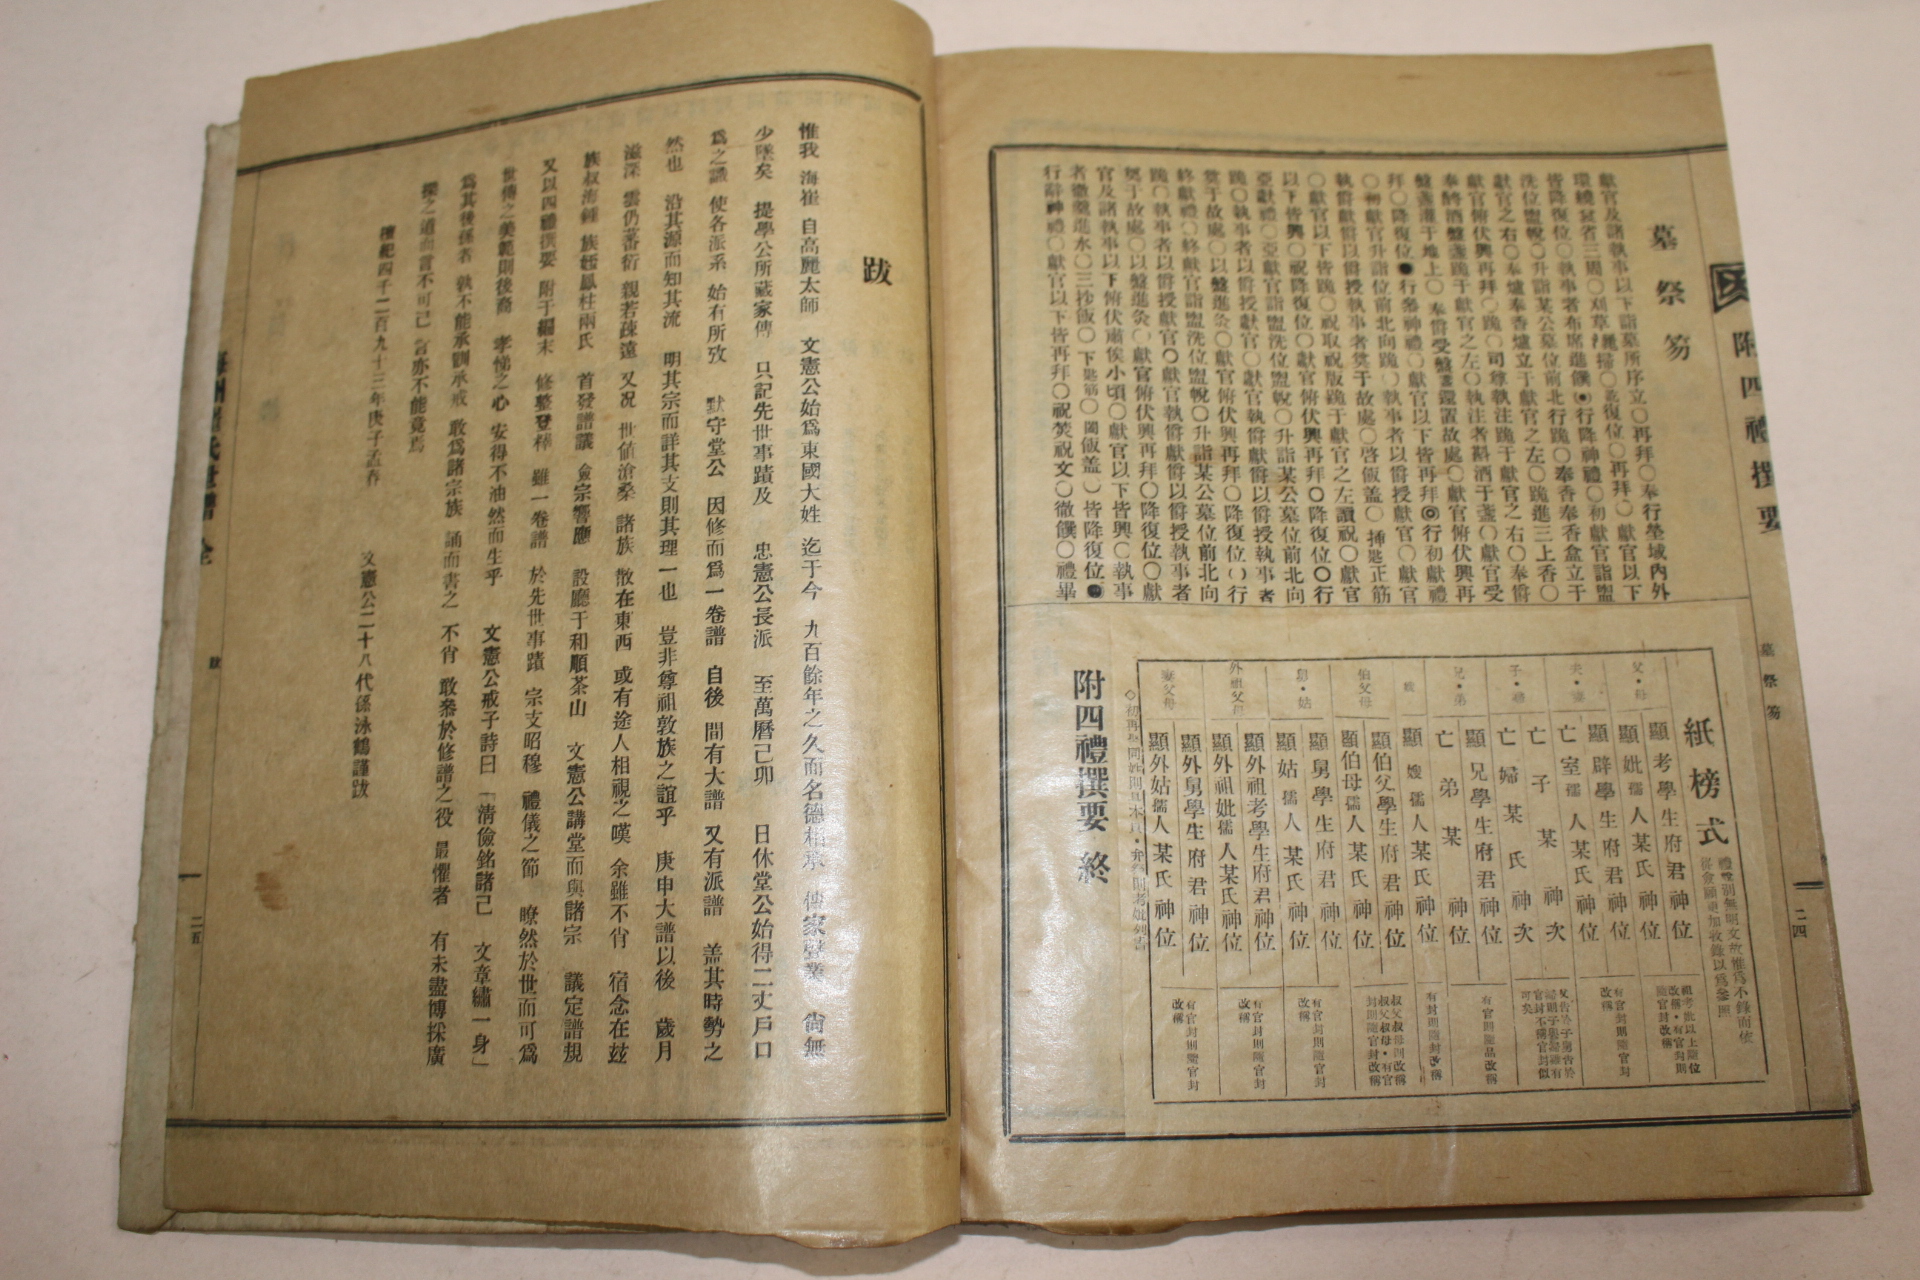 附四禮撰要
墓祭笏
獻官及諸執事以下詣墓所序立○再拜○奉行塋域內外
環繞哀省三周○刈草○復位○再拜○獻官以下
皆降復位○執事者布席進饌●行降神禮○初獻官詣盥
洗位盥帨○升詣某公墓位前北行跪○奉香奉香盒立于
獻官之右○奉爐奉香爐立于獻官之左○跪進三上香○
獻官俯伏興再拜○跪○司尊執注跪于獻官之右○奉爵
奉酒盤盞跪于獻官之左○執注者斟酒于盞○獻官受
盤盞灌于地上○奉爵受盤盞還置故處○獻官俯伏興再
拜○降復位●行參神禮○獻官以下皆再拜◎行初獻禮
○初獻官升詣位前北向跪○執事者以爵授獻官○獻官
執爵獻爵以爵授執事者奠于故處○啓飯盖○挿匙正筋
○獻官以下皆跪○祝取祝版跪于獻官之左讀祝○獻官
以下皆興○祝降復位○獻官俯伏興再拜○降復位○行
亞獻禮○亞獻官詣盥洗位盥帨○升詣某公墓位前北向
跪○執事者以爵授獻官○獻官執爵獻爵以爵授執事者
奠于故處○以盤進灸○獻官俯伏興再拜○降復位○行
終獻禮○終獻官詣盥洗位盥帨○升詣某公墓位前北向
跪○執事者以爵授獻官○獻官執爵獻爵以爵授執事者
奠于故處○以盤進灸○獻官俯伏興再拜○降復位○獻
官及諸執事以下俯伏肅俟小頃○獻官以下皆興○執事
者徹羹進水○三抄飯○下匙筋○闔飯盖○皆降復位●
行辭神禮○獻官以下皆再拜○祝焚祝文○徹饌○禮畢
墓祭笏
二四
紙榜式
父・母
顯考學生府君神位
顯妣孺人某氏神位
夫・妻
顯辟學生府君神位
亡室孺人某氏神位
有官封則隨官封
改稱
子・婦
亡子某神次
亡婦某氏神次
兄・弟
顯兄學生府君神位
亡弟某神位
有官則隨品改稱
嫂
顯嫂孺人某氏神位
有封則隨封改稱
伯父母
顯伯父學生府君神位
顯伯母孺人某氏神位
叔父叔母則改稱
叔父叔母・有官
封則隨官封改稱
舅・姑
顯舅學生府君神位
顯姑孺人某氏神位
有官封則隨官封
改稱
外祖父母
顯外祖考學生府君神位
顯外祖妣孺人某氏神位
有官封則隨官封
改稱
妻父母
顯外舅學生府君神位
顯外姑孺人某氏神位
有官封則隨官封
改稱
附四禮撰要 終
跋
惟我 海崔 自高麗太師 文憲公始爲東國大姓 迄于今 九百餘年之久而名德相承 傳家世業 尙無
少墜矣 提學公所藏家傳 只記先世事蹟及 忠憲公長派 至萬曆己卯 日休堂公始得二丈戶口
爲之識 使各派系 始有所攷 默守堂公 因修而爲一卷譜 自後 間有大譜 又有派譜 盖其時勢之
然也 沿其源而知其流 明其宗而詳其支則其理一也 豈非尊祖敦族之誼乎 庚申大譜以後 歲月
滋深 雲仍蕃衍 親若疎遠 又况 世値滄桑 諸族 散在東西 或有途人相視之嘆 余雖不肖 宿念在玆
族叔海鍾 族姪鳳柱兩氏 首發譜議 僉宗響應 設廳于和順茶山 文憲公講堂而與諸宗 議定譜規
又以四禮撰要 附于編末 修整登梓 雖一卷譜 於先世事蹟 宗支昭穆 禮儀之節 瞭然於世而可爲
世傳之美範則後裔 孝悌之心 安得不油然而生乎 文憲公戒子詩曰「淸儉銘諸己 文章繡一身」
爲其後孫者 孰不能承訓承戒 敢爲諸宗族 誦而書之 不肖 敢叅於修譜之役 最懼者 有未盡博採廣
搜之道而言不可已 言亦不能竟焉
檀紀四千二百九十三年庚子孟春
文憲公二十八代孫泳鶴謹跋
海州崔氏世譜 全
跋
二五